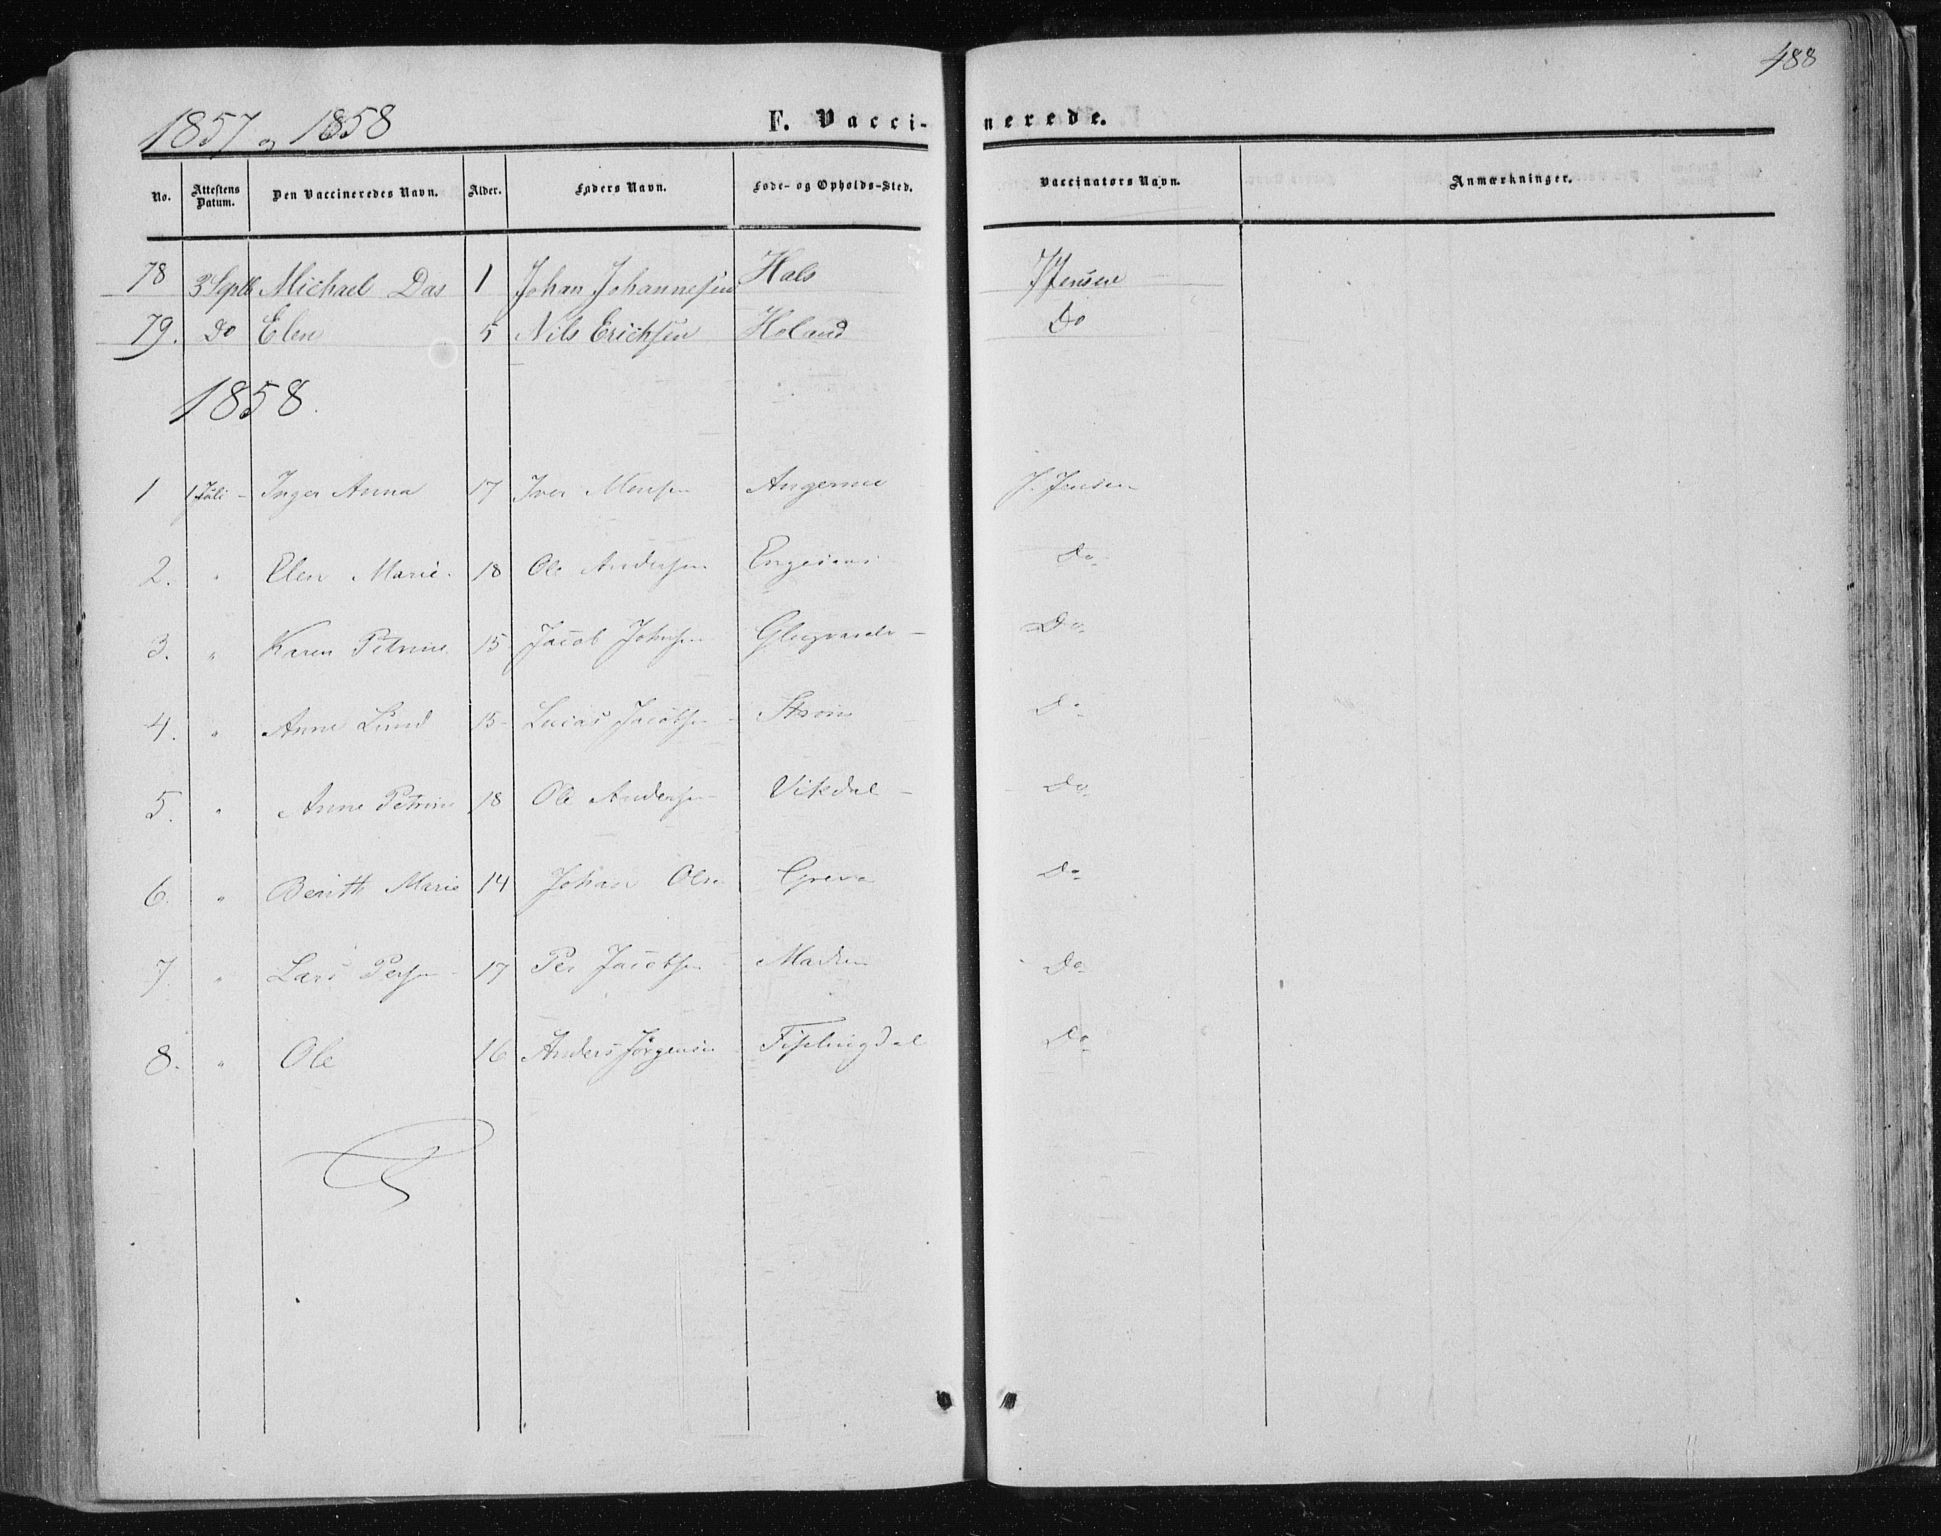 488
1857 og 1858 F. Vaccinerede.
No. Attestens Datum. Den Vaccineredes Navn. Alder. Faders Navn. Føde- og Opholds-Sted. Vaccinators Navn. Anmærkninger.
78 3 Septb Michael Das 1 Johan Johannesen Hals J Jensen
79. Do Elen 5 Nils Erichsen Holand Do
1858.
1 1 Juli - Inger Anna 17 Iver Monsen J. Jensen
2. " Elen Marie. 18 Ole Andersen Do
3. " Karen Petrine 15 Jacob Johnsen Do
4. " Anne Lund 15 - Lucas Jacobsen Do
5. " Anne Petrine 18 Ole Andersen - Vikdal - Do
6. " Berith Marie 14 Johan Olsen Do
7. " Lars Persen 17 Per Jacobsen Do
8. " Ole 16 Anders Jørgensen Fiplingdal Do